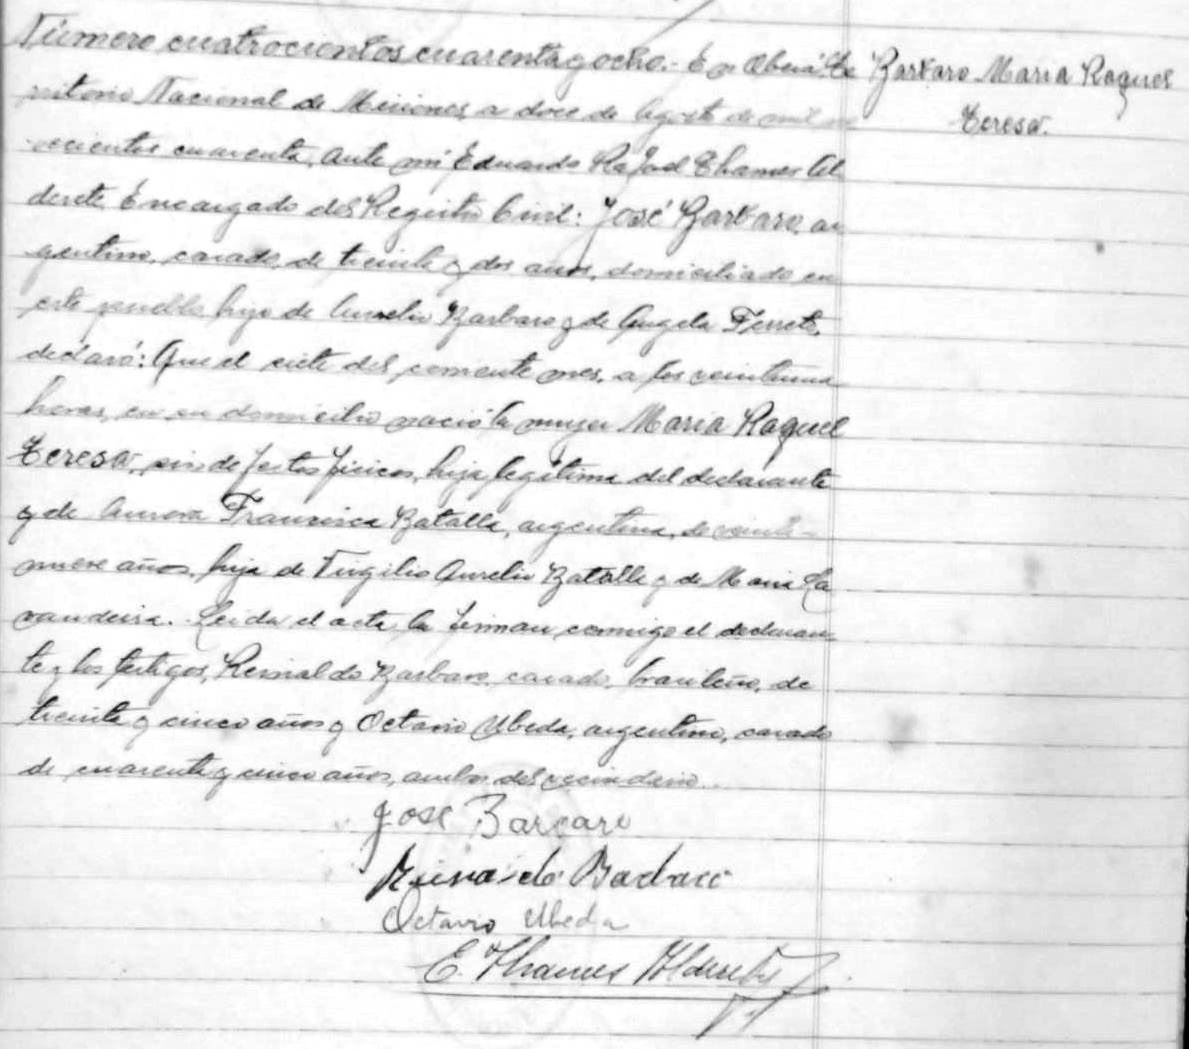 Número cuatrocientos cuarenta y ocho.- En Oberá Te
rritorio Nacional de Misiones, a doce de Agosto de mil no
vecientos cuarenta, ante mí Eduardo Rafael Thames Al
derete, Encargado del Registro Civil: José Barbaro, ar
gentino, casado, de treinta y dos años, domiciliado en
este pueblo, hijo de Aurelio Barbaro y de Angela Ferreto,
declaró: Que el siete del corriente mes, a las veintiuna
horas, en su domicilio nació la mujer Maria Raquel
Teresa, sin defectos físicos, hija legítima del declarante
y de Aurora Francisca Batalla, argentina, de veinti-
nueve años, hija de Virgilio Aurelio Batalla y de Maria La
vandeira. Leída el acta la firman conmigo el declaran
te y los testigos, Reinaldo Barbaro, casado, brasileño, de
treinta y cinco años y Octavio Ubeda, argentino, casado
de cuarenta y cinco años, ambos del vecindario.
Barbaro Maria Raquel
Teresa.
José Barbaro
Reinaldo Barbaro
Octavio Ubeda
E. Thames Alderete